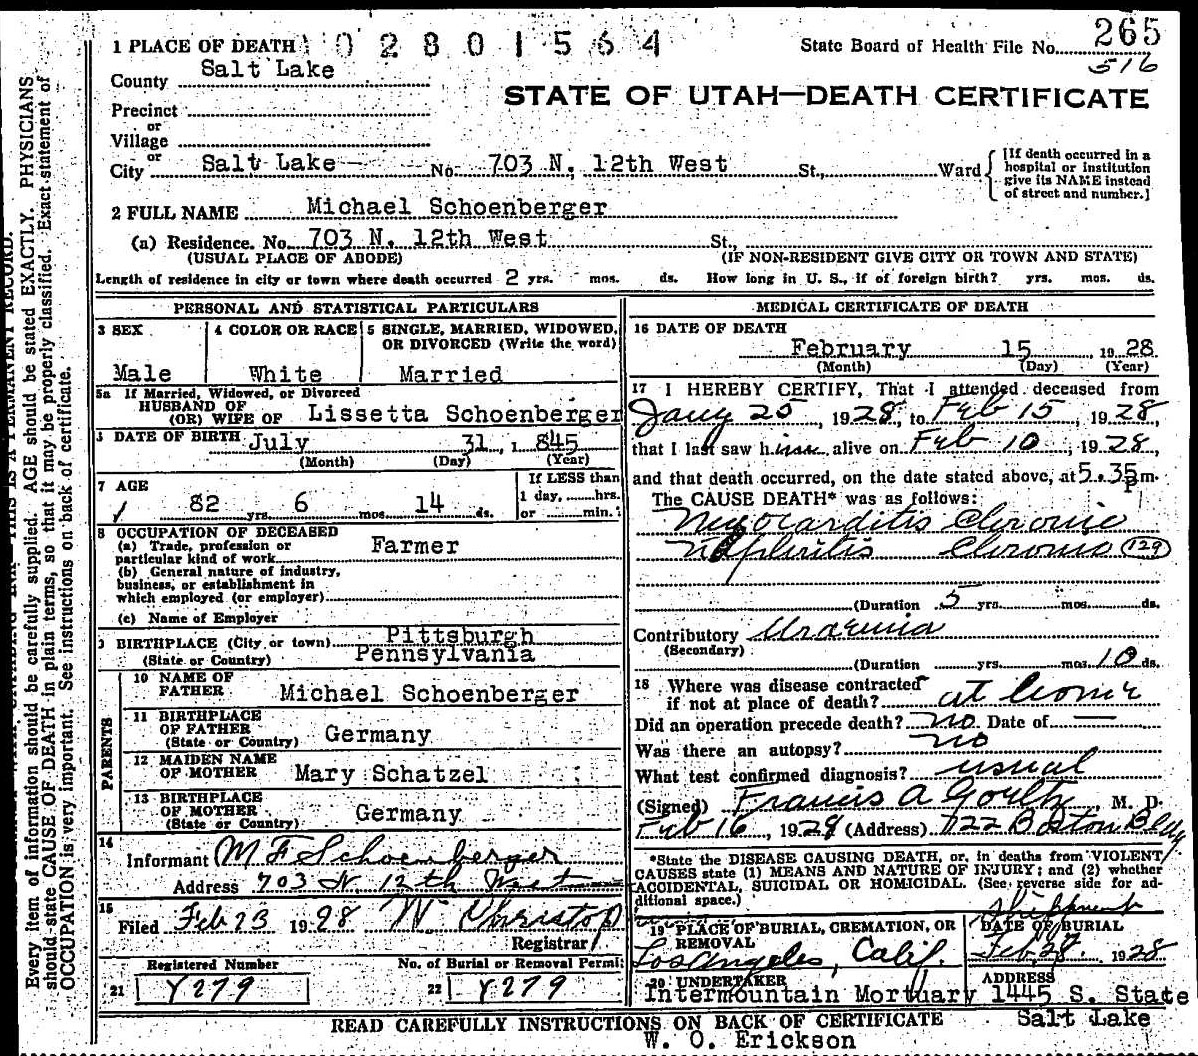 1 PLACE OF DEATH 1 0 2 8 0 1 5 6 4 State Board of Health File No. 265
516
County Salt Lake
STATE OF UTAH—DEATH CERTIFICATE
Precinct
or
Village
or
City Salt Lake No. 703 N. 12th West St., Ward
[If death occurred in a
hospital or institution
give its NAME instead
of street and number.]
2 FULL NAME Michael Schoenberger
(a) Residence. No. 703 N. 12th West St.,
(USUAL PLACE OF ABODE) (IF NON-RESIDENT GIVE CITY OR TOWN AND STATE)
Length of residence in city or town where death occurred 2 yrs. mos. ds. How long in U. S., if of foreign birth? yrs. mos. ds.
PERSONAL AND STATISTICAL PARTICULARS
3 SEX
Male
4 COLOR OR RACE
White
5 SINGLE, MARRIED, WIDOWED,
OR DIVORCED (Write the word)
Married
5a If Married, Widowed, or Divorced
HUSBAND OF
(OR) WIFE OF Lissetta Schoenberger
DATE OF BIRTH July 31, 1 845
(Month) (Day) (Year)
7 AGE
82 yrs. 6 mos. 14 ds.
If LESS than
1 day, hrs.
or min.
8 OCCUPATION OF DECEASED
(a) Trade, profession or
particular kind of work Farmer
(b) General nature of industry,
business, or establishment in
which employed (or employer)
(c) Name of Employer
9 BIRTHPLACE (City or town) Pittsburgh
(State or Country) Pennsylvania
PARENTS
10 NAME OF
FATHER Michael Schoenberger
11 BIRTHPLACE
OF FATHER
(State or Country) Germany
12 MAIDEN NAME
OF MOTHER Mary Schatzel
13 BIRTHPLACE
OF MOTHER
(State or Country) Germany
14
Informant M F Schoenberger
Address 703 N. 12th West
15
Filed Feb 23 1928 W Christop
Registrar
Registered Number No. of Burial or Removal Permit
21 Y279 22 Y279
MEDICAL CERTIFICATE OF DEATH
16 DATE OF DEATH
February 15, 1928
(Month) (Day) (Year)
17 I HEREBY CERTIFY, That I attended deceased from
Jany 25, 1928, to Feb 15, 1928,
that I last saw him alive on Feb 10, 1928,
and that death occurred, on the date stated above, at 5.35 P m.
The CAUSE DEATH* was as follows:
Myocarditis Chronic
Nephritis Chronic (129)
(Duration 5 yrs. mos. ds.
Contributory Uraemia
(Secondary)
(Duration yrs. mos. 10 ds.
18 Where was disease contracted
if not at place of death? at home
Did an operation precede death? no Date of —
Was there an autopsy? no
What test confirmed diagnosis? usual
(Signed) Francis A Goeltz, M. D.
Feb 16, 1928 (Address) 722 Boston Bldg
*State the DISEASE CAUSING DEATH, or, in deaths from VIOLENT
CAUSES state (1) MEANS AND NATURE OF INJURY; and (2) whether
ACCIDENTAL, SUICIDAL OR HOMICIDAL. (See reverse side for ad-
ditional space.)
19 PLACE OF BURIAL, CREMATION, OR
REMOVAL
Los Angeles, Calif.
Shipment
DATE OF BURIAL
Feb. 27, 1928
20 UNDERTAKER ADDRESS
Intermountain Mortuary 1445 S. State
Salt Lake
READ CAREFULLY INSTRUCTIONS ON BACK OF CERTIFICATE
W. O. Erickson
Every item of information should be carefully supplied. AGE should be stated EXACTLY. PHYSICIANS
should state CAUSE OF DEATH in plain terms, so that it may be properly classified. Exact statement of
OCCUPATION is very important. See instructions on back of certificate.